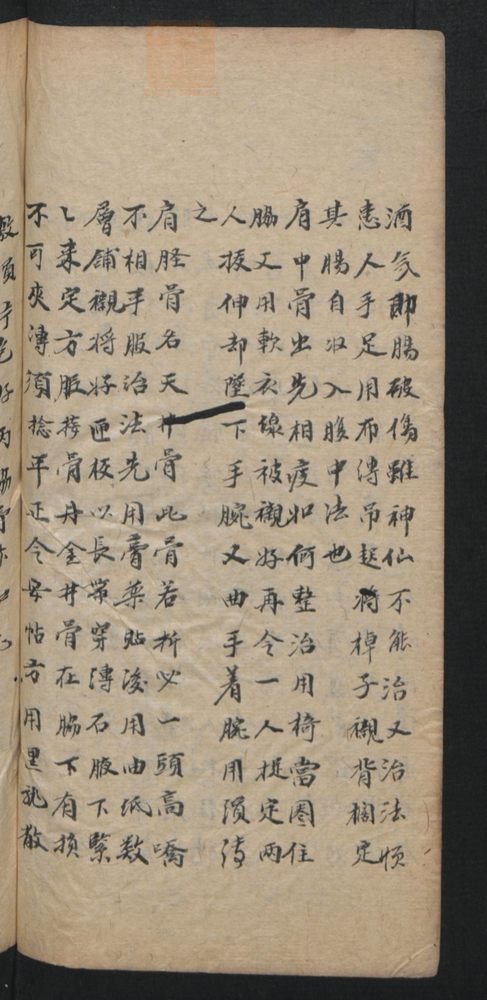 酒气即腸破傷雖神仙不能治又治法順
患人手足用布縛吊起将棹子襯背擱定
其腸自收入腹中法也
肩中骨出先相度如何整治用椅當圈住
脇又用軟衣線被襯好再令一人捉定两
人拔伸却墜下手腕又曲手着腕用須縛
之
肩胫骨名天井骨此骨若折必一頭高喬
不相手股治法先用膏薬贴後用油纸数
層鋪襯将好匝板以長带穿縛石腋下緊
乙来定方服荐骨丹金井骨在脇下有損
不可夾溥須捻平正令安帖方用黒龍散